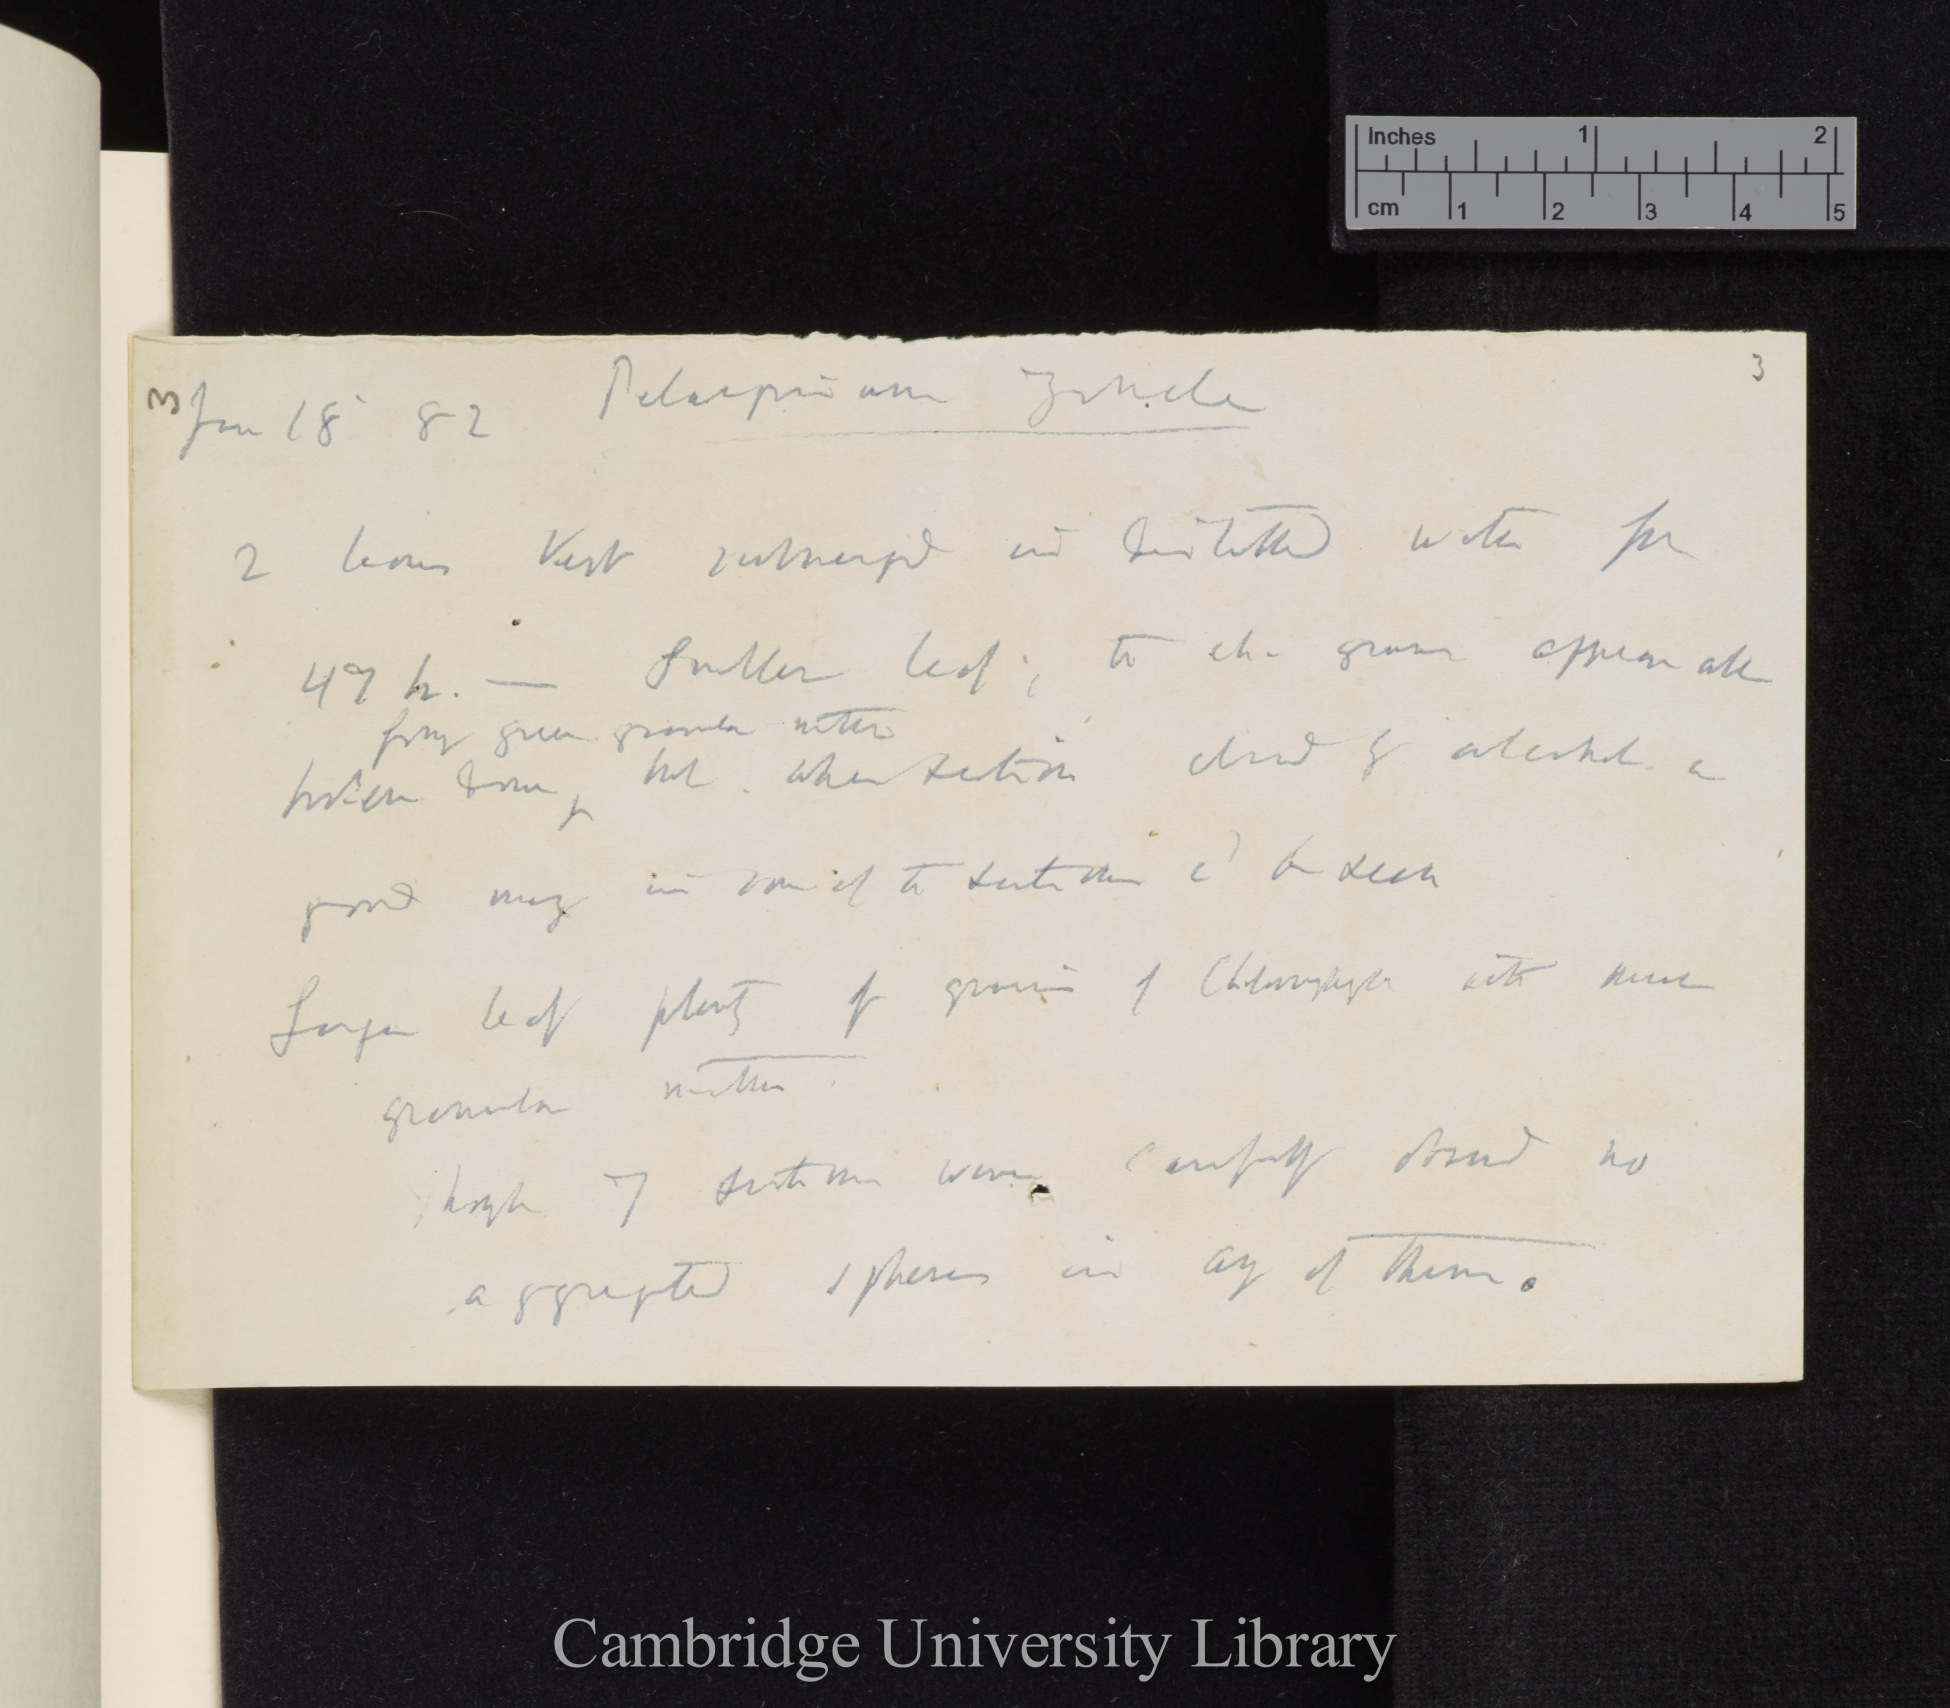 Inches 1 2
cm 1 2 3 4 5
3 3
Jan 18 82 Pelargonium Zonale
2 leaves kept submerged in distilled water for
47 h. — Smaller leaf, the ch. grains appear all
form green granular matter
broken down, but when section cleared by alcohol a
good many in some of the sections cd be seen
Larger leaf plenty of grains of Chlorophyll with much
granular matter.
though 7 sections were carefully observed no
aggregated spheres in any of them.
Cambridge University Library